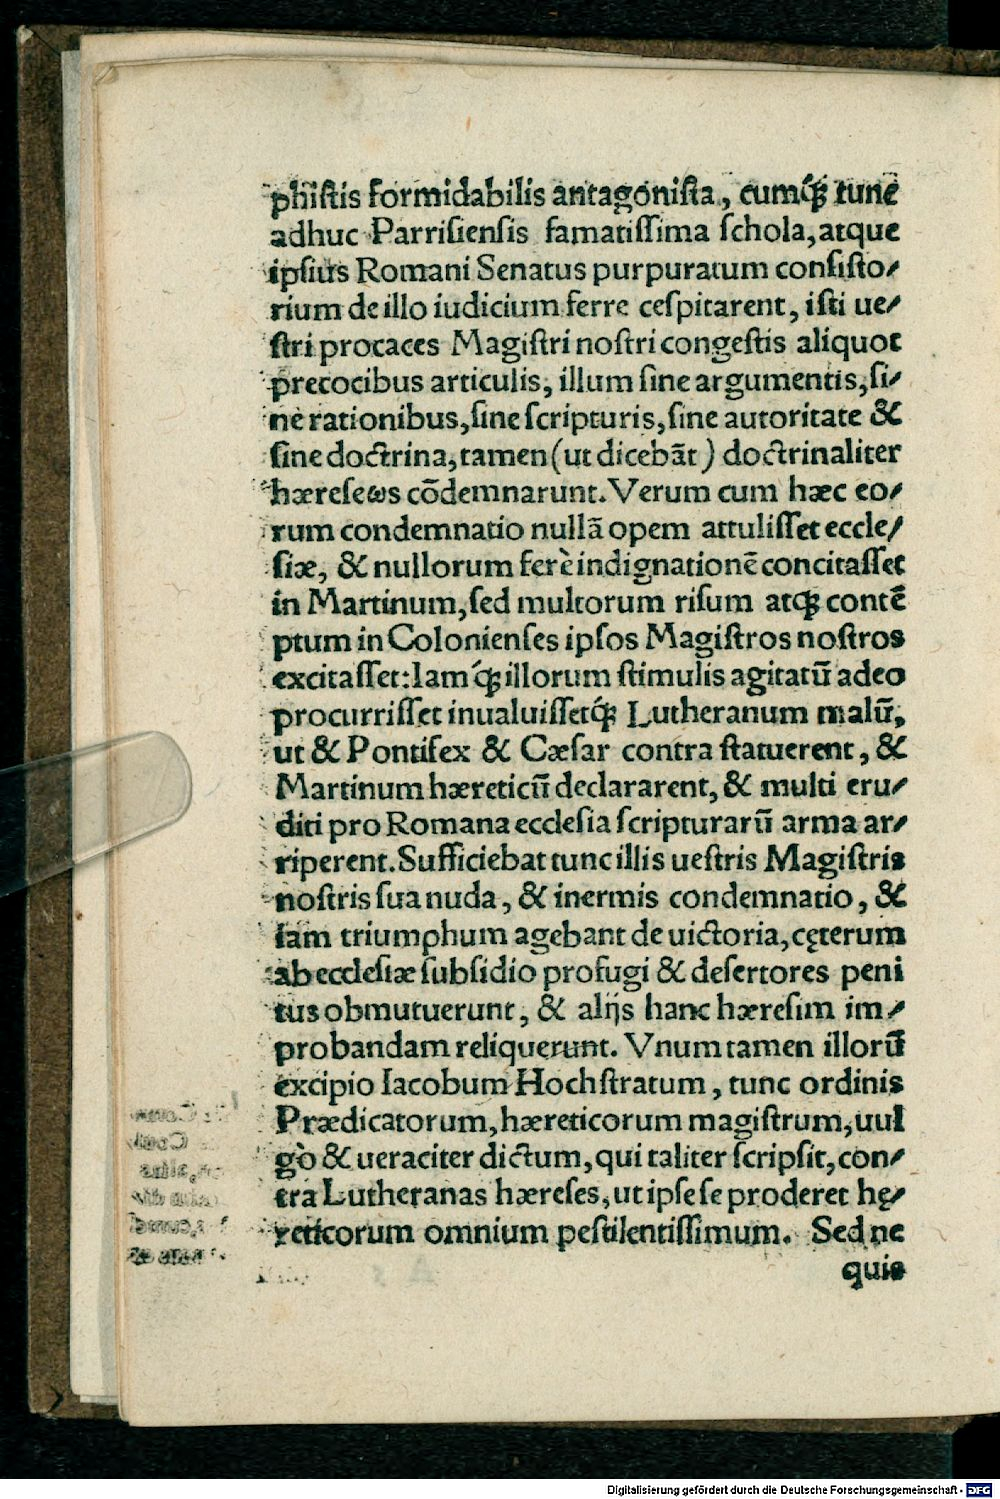 phistis formidabilis antagonista, cumq́ꝫ tunc
adhuc Parrisiensis famatissima schola, atque
ipsius Romani Senatus purpuratum consisto⸗
rium de illo iudicium ferre cespitarent, isti ue⸗
stri procaces Magistri nostri congestis aliquot
precocibus articulis, illum sine argumentis, si⸗
ne rationibus, sine scripturis, sine autoritate &
sine doctrina, tamen (ut dicebāt) doctrinaliter
hæreseωs cōdemnarunt. Verum cum hæc eo⸗
rum condemnatio nullā opem attulisset eccle⸗
siæ, & nullorum ferè indignationē concitasset
in Martinum, sed multorum risum atqꝫ contē
ptum in Colonienses ipsos Magistros nostros
excitasset: Iamq́ꝫ illorum stimulis agitatū adeo
procurrisset inualuissetq́ꝫ Lutheranum malū,
ut & Pontifex & Cæsar contra statuerent, &
Martinum hæreticū declararent, & multi eru⸗
diti pro Romana ecclesia scripturarū arma ar⸗
riperent. Sufficiebat tunc illis uestris Magistris
nostris sua nuda, & inermis condemnatio, &
iam triumphum agebant de uictoria, cęterum
ab ecclesiæ subsidio profugi & desertores peni
tus obmutuerunt, & alijs hanc hæresim im⸗
probandam reliquerunt. Vnum tamen illorū
excipio Iacobum Hochstratum, tunc ordinis
Prædicatorum, hæreticorum magistrum, uul
gò & ueraciter dictum, qui taliter scripsit, con⸗
tra Lutheranas hæreses, ut ipse se proderet hę⸗
reticorum omnium pestilentissimum. Sed ne
quis
Digitalisierung gefördert durch die Deutsche Forschungsgemeinschaft - DFG